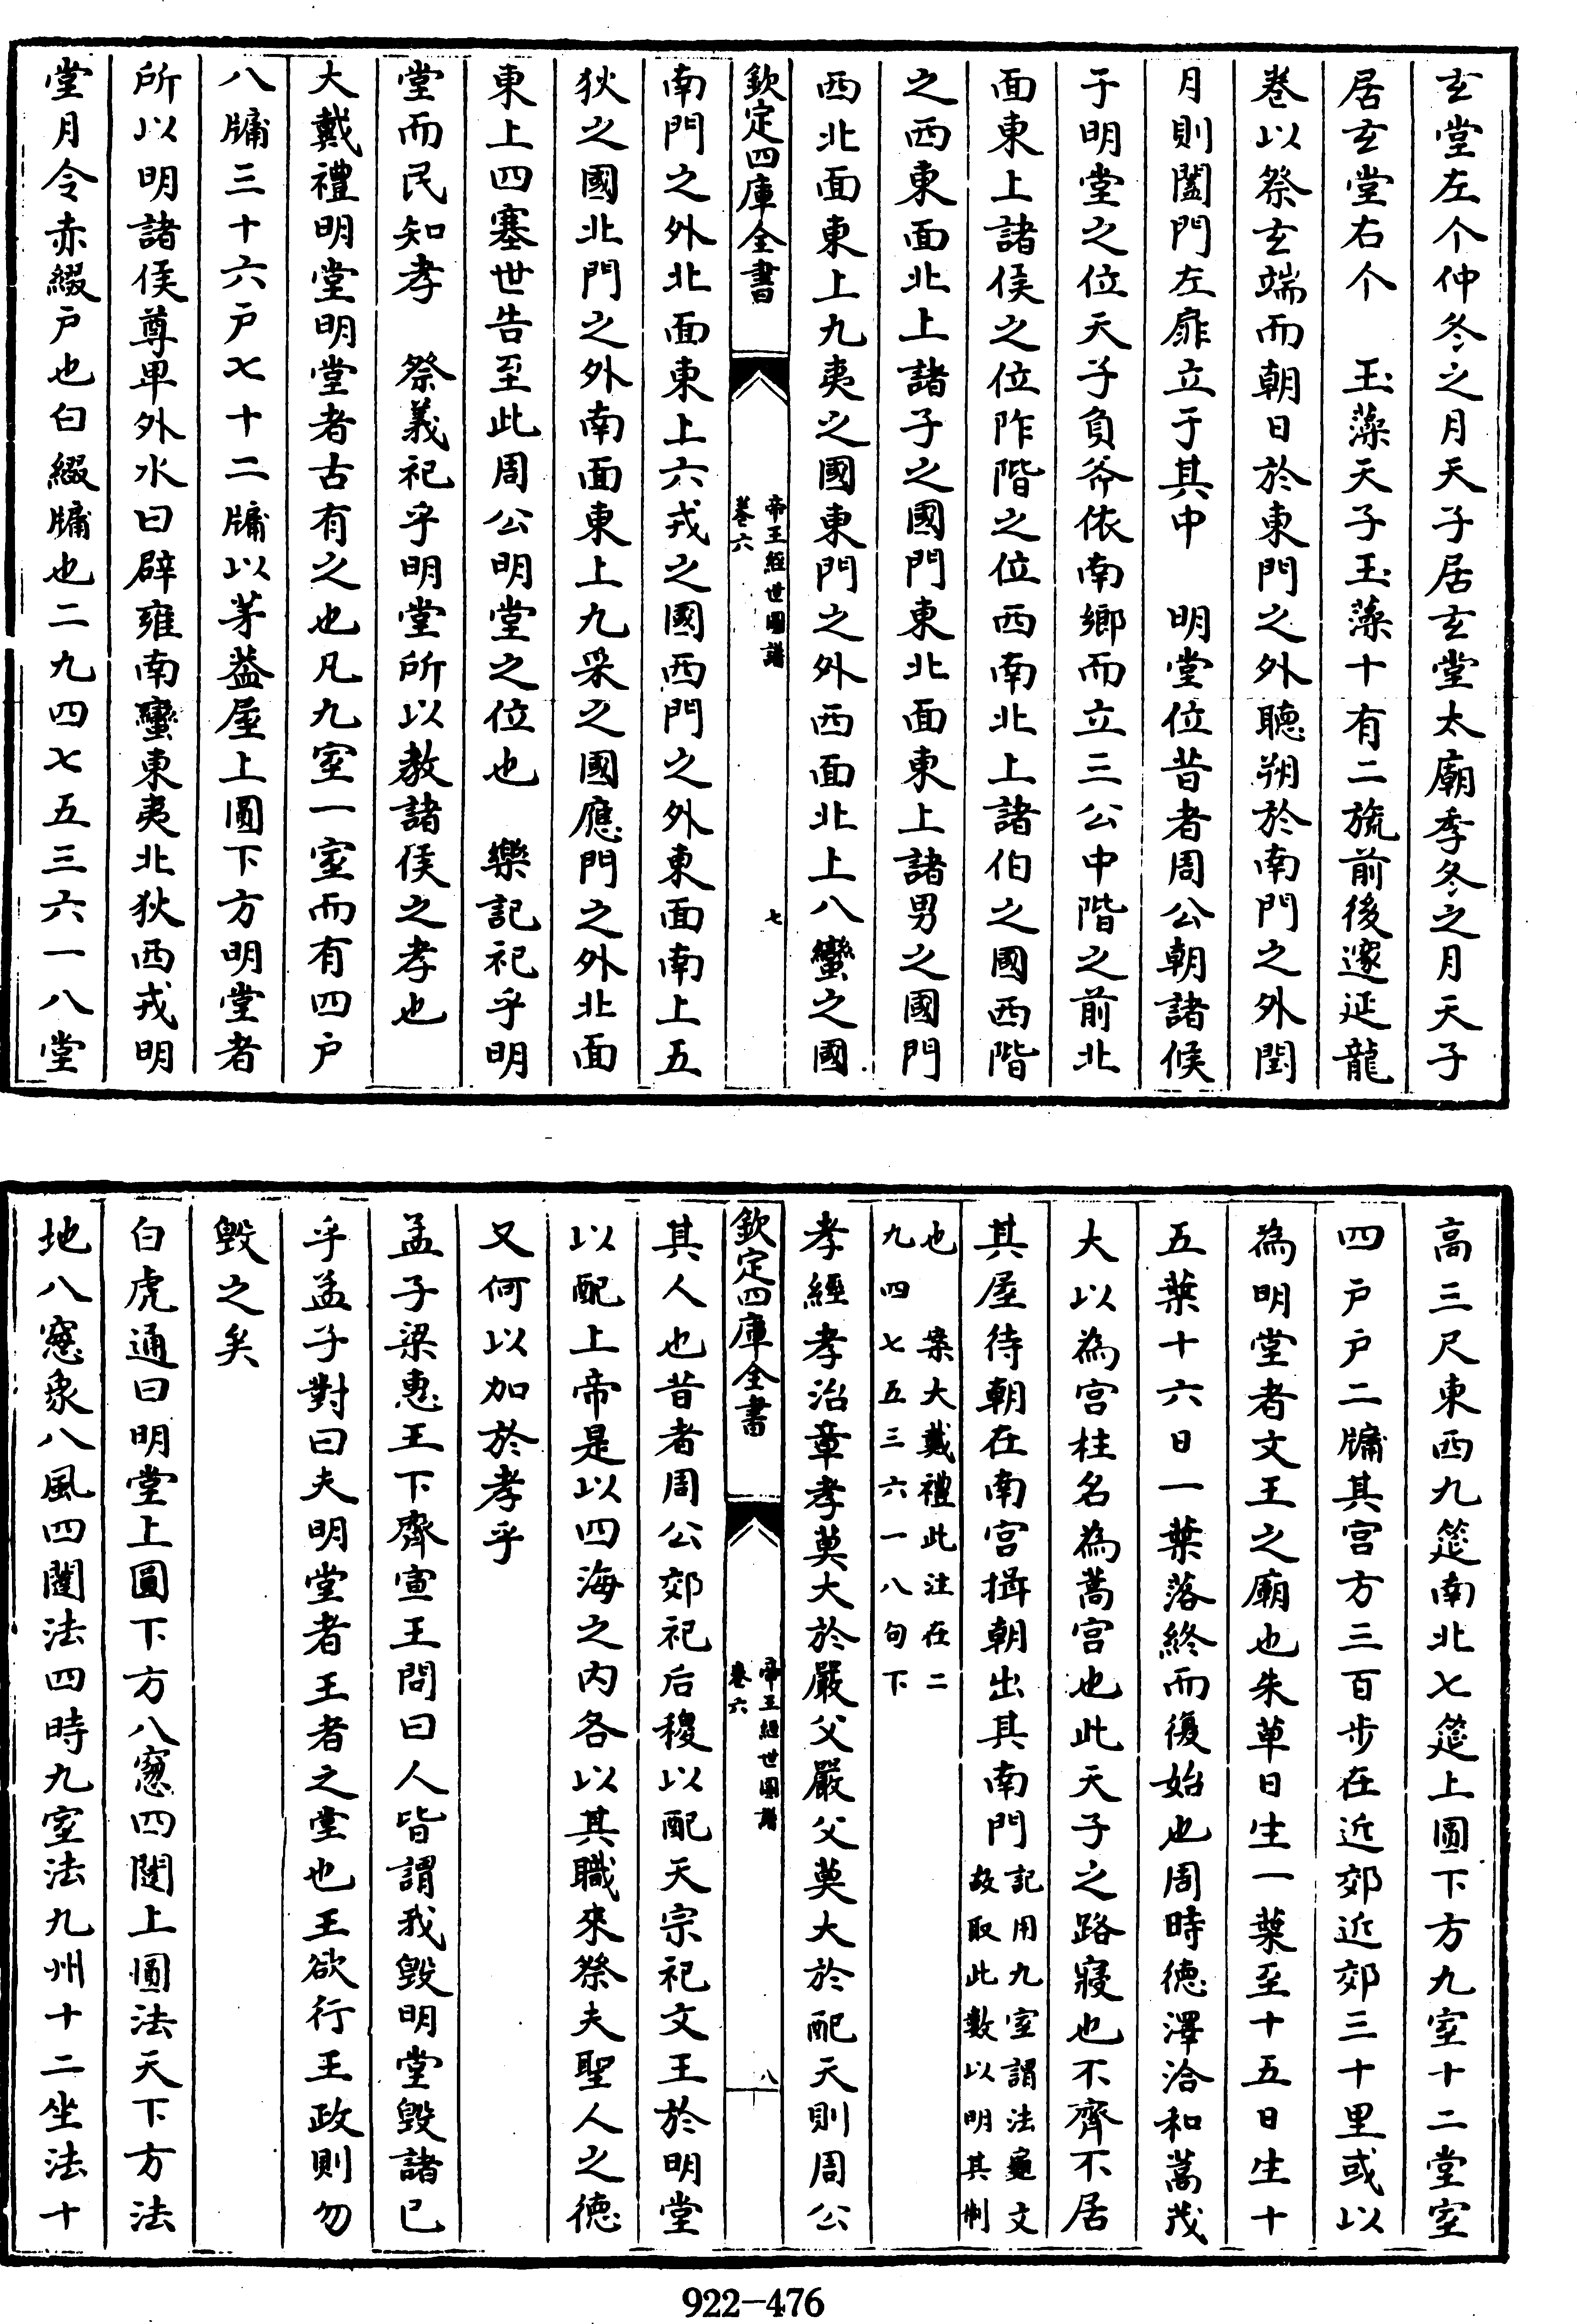 玄堂左个仲冬之月天子居玄堂太廟季冬之月天子
居玄堂右个　玉藻天子玉藻十有二旒前後邃延龍
卷以祭玄端而朝日於東門之外聽朔於南門之外閏
月則闔門左扉立于其中　明堂位昔者周公朝諸侯
于明堂之位天子負斧依南鄉而立三公中階之前北
面東上諸侯之位阼階之位西南北上諸伯之國西階
之西東面北上諸子之國門東北面東上諸男之國門
西北面東上九夷之國東門之外西面北上八蠻之國
欽定四庫全書
帝王經世圖譜
卷六
七
南門之外北面東上六戎之國西門之外東面南上五
狄之國北門之外南面東上九采之國應門之外北面
東上四塞世告至此周公明堂之位也　樂記祀乎明
堂而民知孝　祭義祀乎明堂所以教諸侯之孝也
大戴禮明堂明堂者古有之也凡九室一室而有四戶
八牖三十六戶七十二牖以茅葢屋上圓下方明堂者
所以明諸侯尊卑外水曰辟雍南蠻東夷北狄西戎明
堂月令赤綴戶也白綴牖也二九四七五三六一八堂
高三尺東西九筵南北七筵上圓下方九室十二堂室
四戶戶二牖其宫方三百步在近郊近郊三十里或以
為明堂者文王之廟也朱草日生一葉至十五日生十
五葉十六日一葉落終而復始也周時德澤洽和蒿茂
大以為宫柱名為蒿宫也此天子之路寢也不齊不居
其屋待朝在南宫揖朝出其南門記用九室謂法龜文
故取此數以明其制
也　案大戴禮此注在二
九四七五三六一八句下
孝經孝治章孝莫大於嚴父嚴父莫大於配天則周公
欽定四庫全書
帝王經世圖譜
卷六
八
其人也昔者周公郊祀后稷以配天宗祀文王於明堂
以配上帝是以四海之内各以其職來祭夫聖人之德
又何以加於孝乎
孟子梁惠王下齊宣王問曰人皆謂我毁明堂毁諸已
乎孟子對曰夫明堂者王者之堂也王欲行王政則勿
毁之矣
白虎通曰明堂上圓下方八窻四闥上圓法天下方法
地八窻象八風四闥法四時九室法九州十二坐法十
922-476